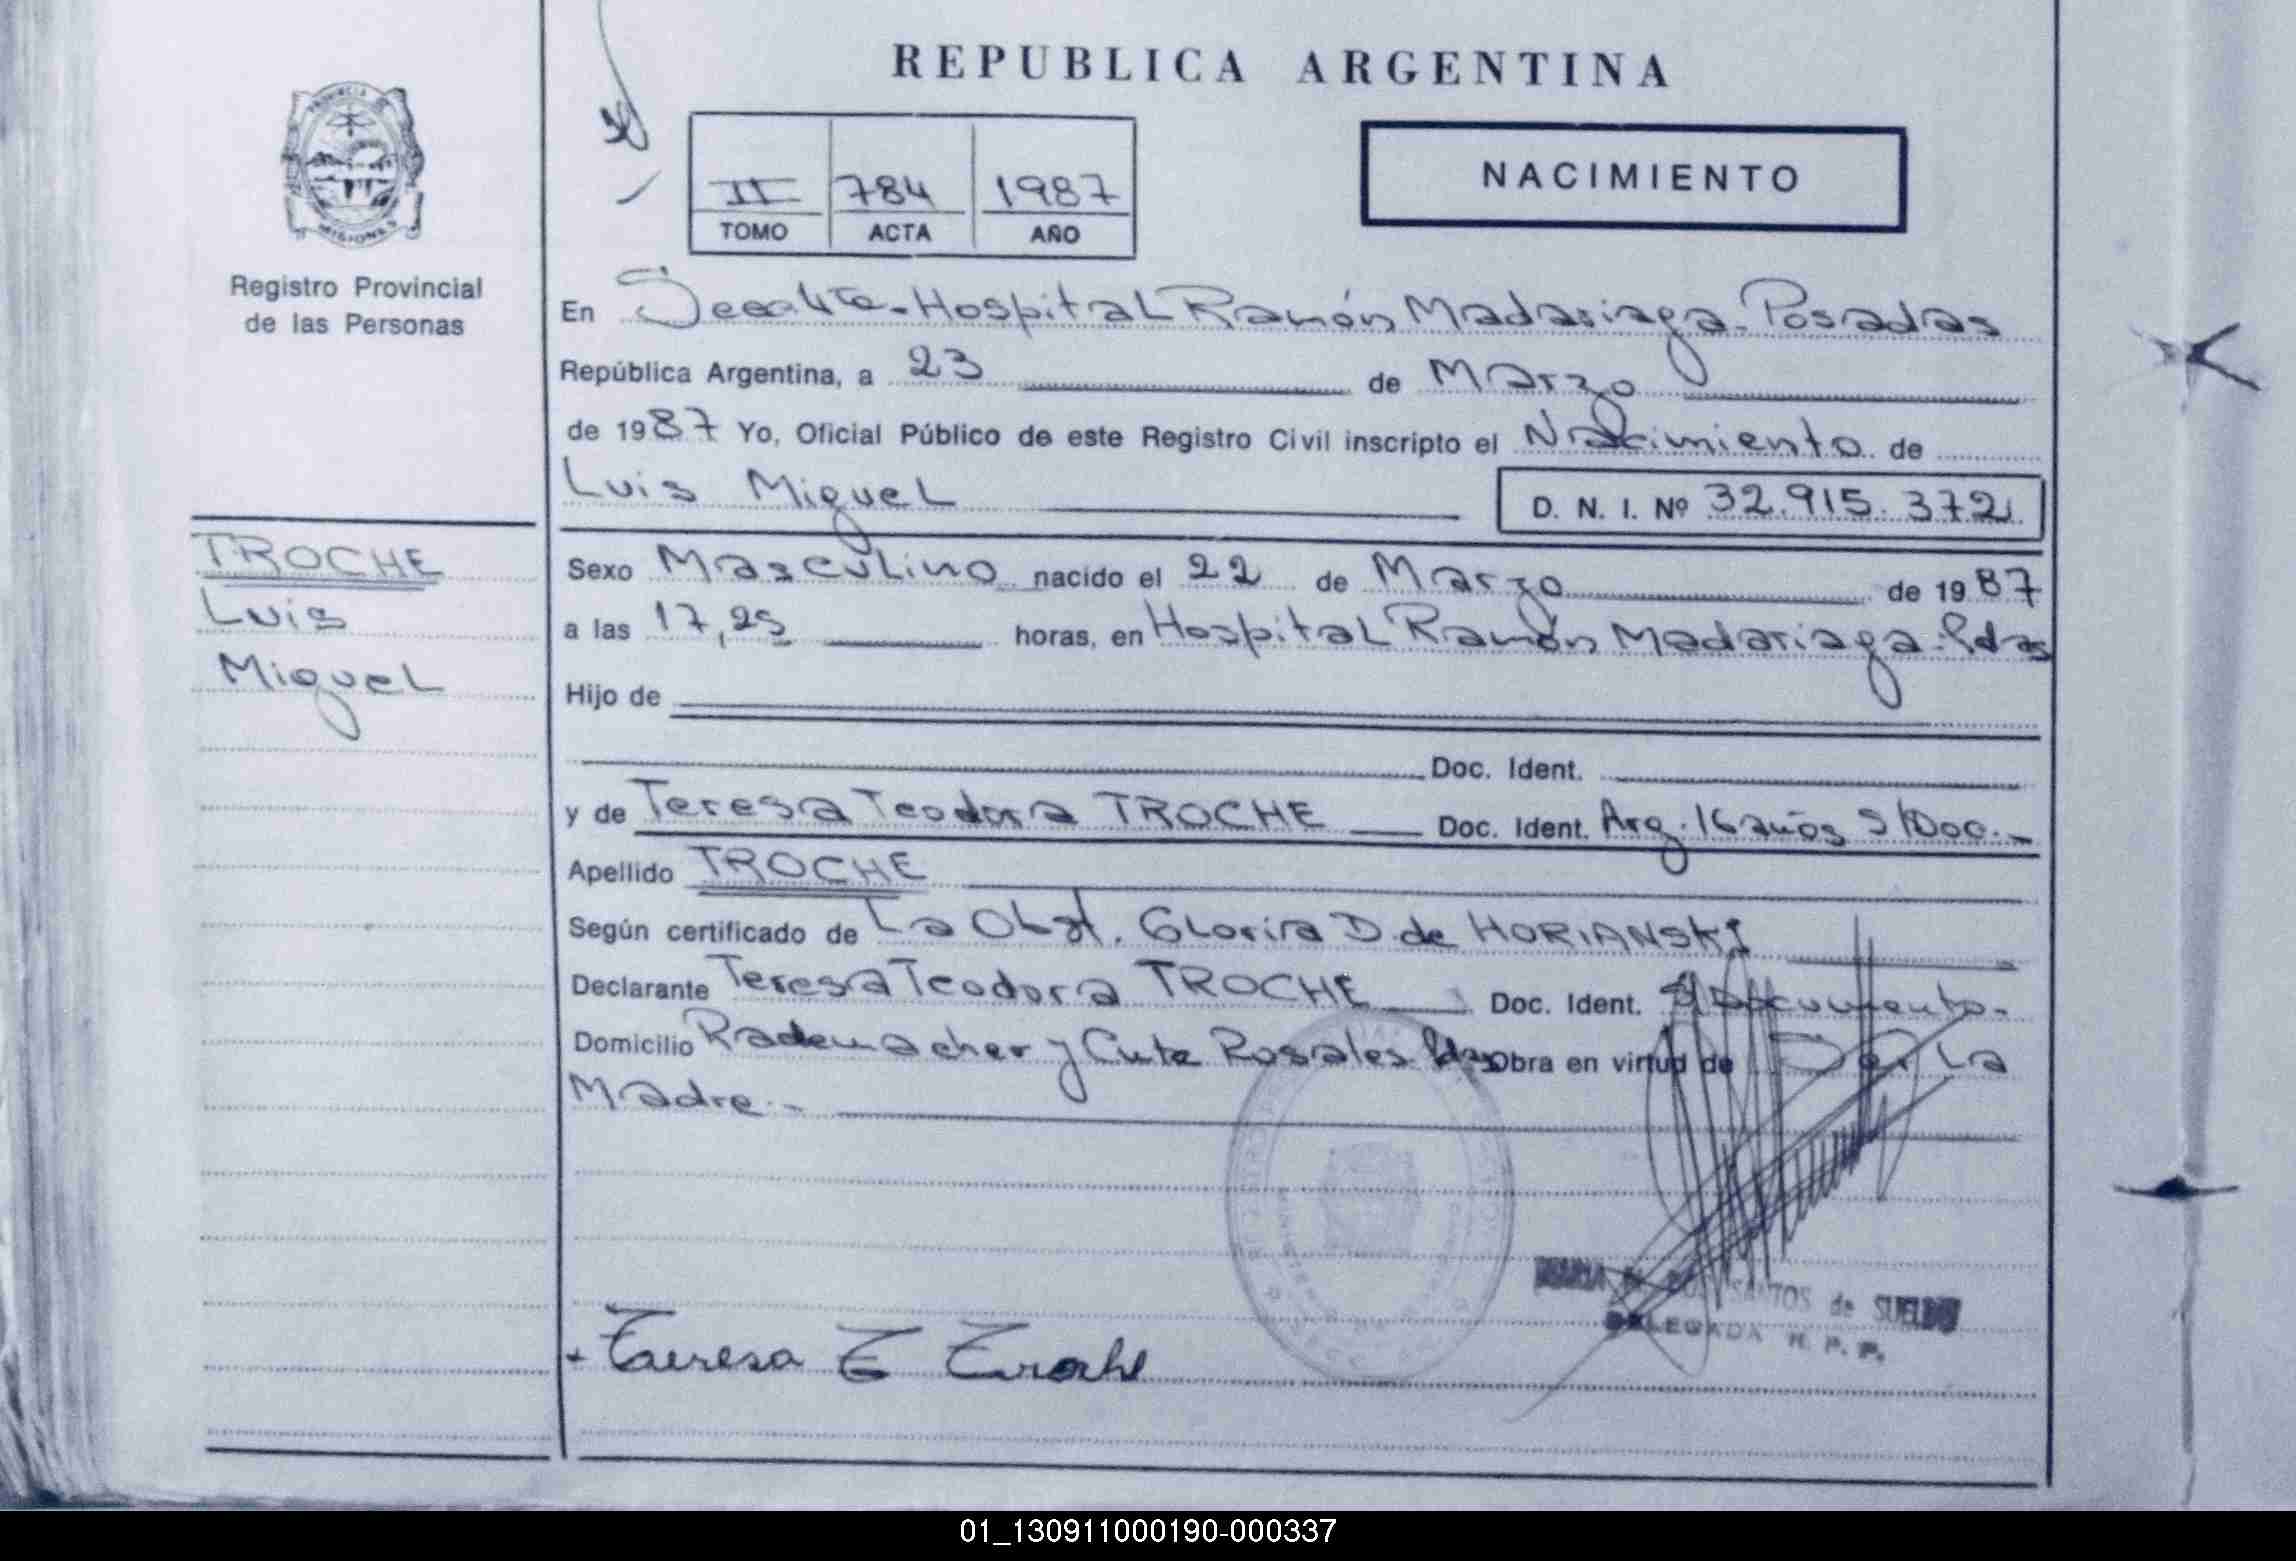 REPUBLICA ARGENTINA
PROVINCIA DE
MISIONES
II 784 1987
TOMO ACTA AÑO
NACIMIENTO
Registro Provincial
de las Personas
En Hospital Ramón Madariaga - Posadas
República Argentina, a 23 de Marzo
de 1987 Yo, Oficial Público de este Registro Civil inscripto el Nacimiento de
Luis Miguel
D. N. I. Nº 32.915.372
TROCHE
Luis
Miguel
Sexo Masculino nacido el 22 de Marzo de 1987
a las 17,25 horas, en Hospital Ramón Madariaga - Pdas
Hijo de
Doc. Ident.
y de Teresa Teodora TROCHE Doc. Ident. Arg. 16 años S/Doc.-
Apellido TROCHE
Según certificado de La Obst. Gloria D. de HORIANSKI
Declarante Teresa Teodora TROCHE Doc. Ident. S/Documento.-
Domicilio Rademacher y Cnte Rosales Pdas Obra en virtud de Ser La
Madre.-
SANTOS de SUELDO
DELEGADA R. P. P.
Teresa T Troche
01_130911000190-000337